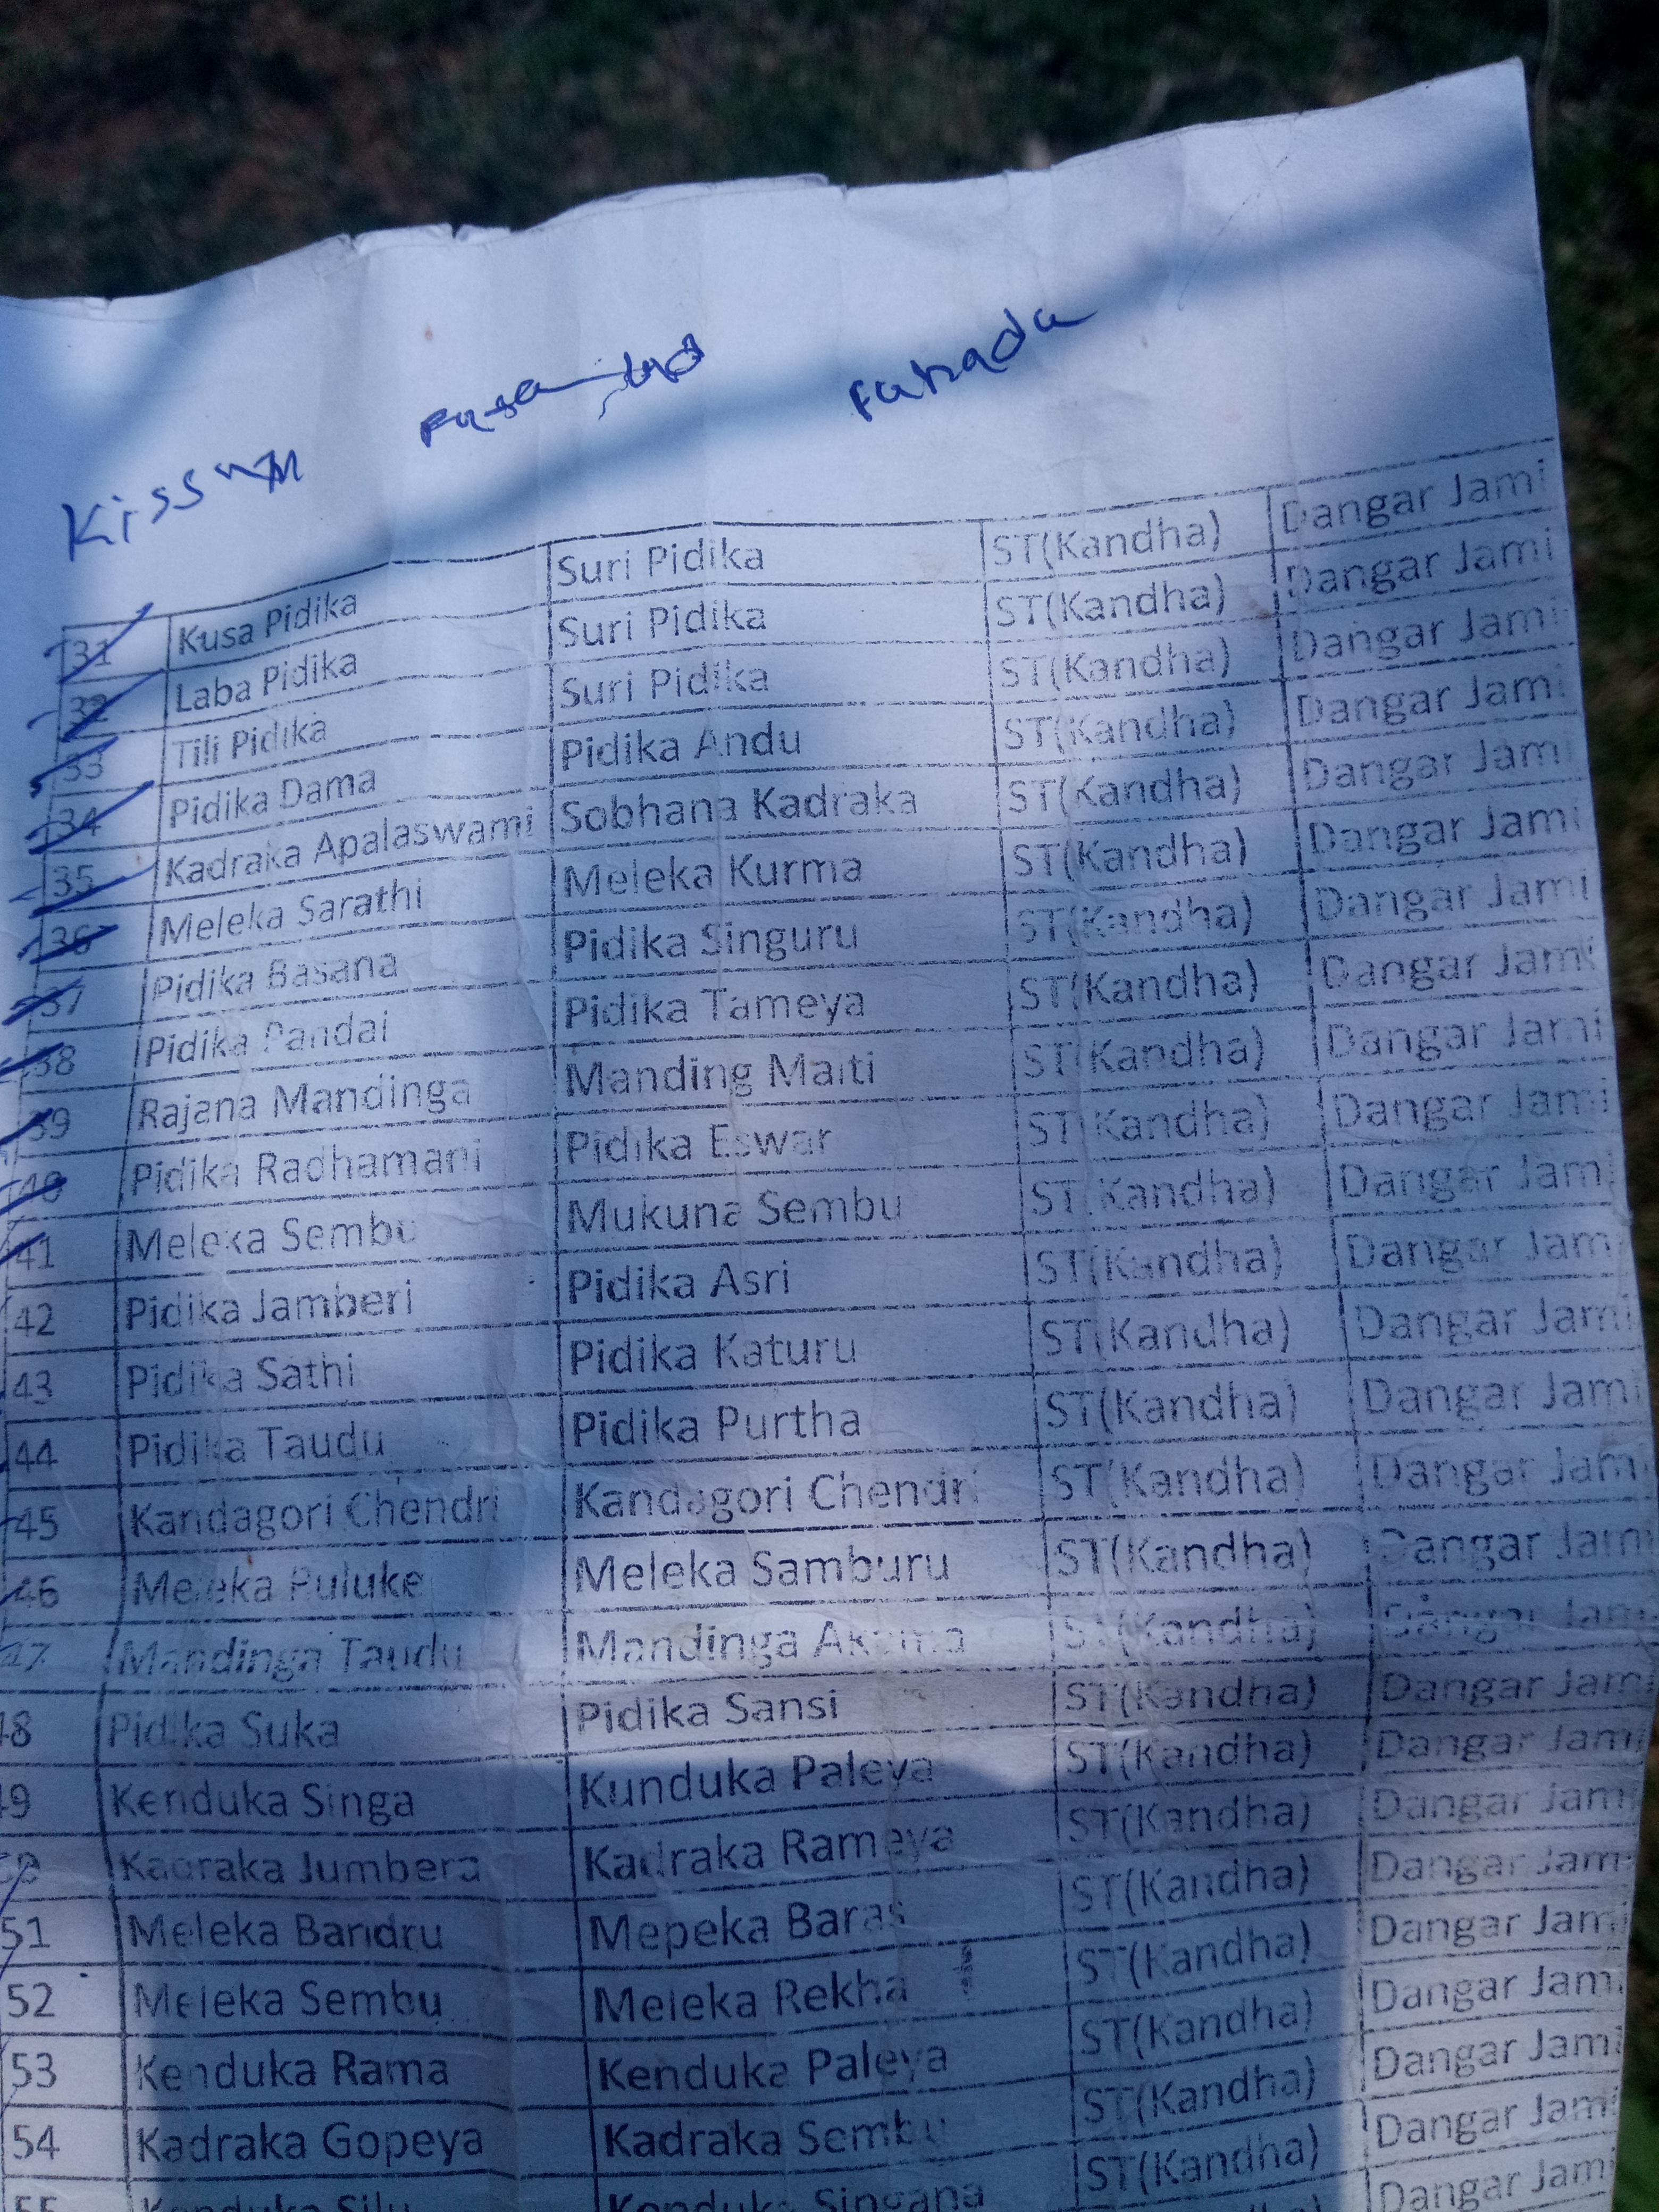 Kissan
31 Kusa Pidika Suri Pidika ST(Kandha) Dangar Jami
32 Laba Pidika Suri Pidika ST(Kandha) Dangar Jami
33 Tili Pidika Suri Pidika ST(Kandha) Dangar Jami
34 Pidika Dama Pidika Andu ST(Kandha) Dangar Jami
35 Kadraka Apalaswami Sobhana Kadraka ST(Kandha) Dangar Jami
36 Meleka Sarathi Meleka Kurma ST(Kandha) Dangar Jami
37 Pidika Basana Pidika Singuru ST(Kandha) Dangar Jami
38 Pidika Pandai Pidika Tameya ST(Kandha) Dangar Jami
39 Rajana Mandinga Manding Maiti ST(Kandha) Dangar Jami
40 Pidika Radhamani Pidika Eswar ST(Kandha) Dangar Jami
41 Meleka Sembu Mukuna Sembu ST(Kandha) Dangar Jami
42 Pidika Jamberi Pidika Asri ST(Kandha) Dangar Jami
43 Pidika Sathi Pidika Katuru ST(Kandha) Dangar Jami
44 Pidika Taudu Pidika Purtha ST(Kandha) Dangar Jami
45 Kandagori Chendri Kandagori Chendri ST(Kandha) Dangar Jami
46 Meleka Puluke Meleka Samburu ST(Kandha) Dangar Jami
47 Mandinga Taudu Mandinga ST(Kandha) Dangar Jami
48 Pidika Suka Pidika Sansi ST(Kandha) Dangar Jami
49 Kenduka Singa Kunduka Paleya ST(Kandha) Dangar Jami
50 Kadraka Jumbera Kadraka Rameya ST(Kandha) Dangar Jami
51 Meleka Bandru Mepeka Baras ST(Kandha) Dangar Jami
52 Meleka Sembu Meleka Rekha ST(Kandha) Dangar Jami
53 Kenduka Rama Kenduka Paleya ST(Kandha) Dangar Jami
54 Kadraka Gopeya Kadraka Sembu ST(Kandha) Dangar Jami
55 Kenduka Silu Kenduka Singana ST(Kandha) Dangar Jami